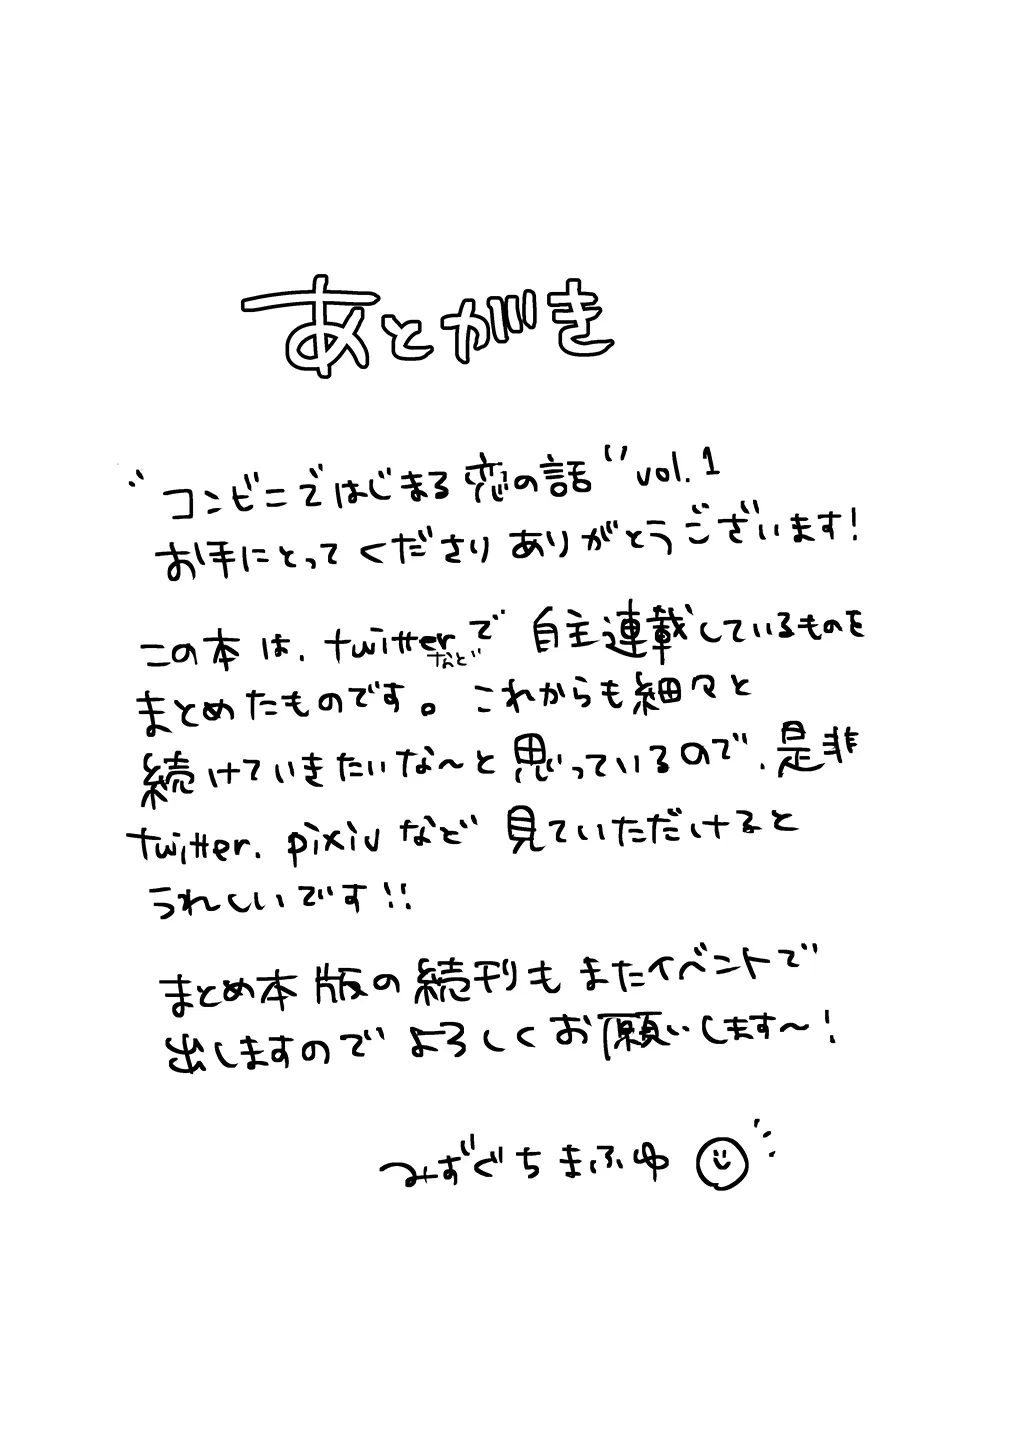 あとがき
"コンビニではじまる恋の話" vol.1
お手にとってくださりありがとうございます!
この本は、twitterなどで自主連載しているものを
まとめたものです。これからも細々と
続けていきたいな〜と思っているので、是非
twitter、pixivなど見ていただけると
うれしいです!!
まとめ本版の続刊もまたイベントで
出しますのでよろしくお願いします〜!
みずぐちまふゆ